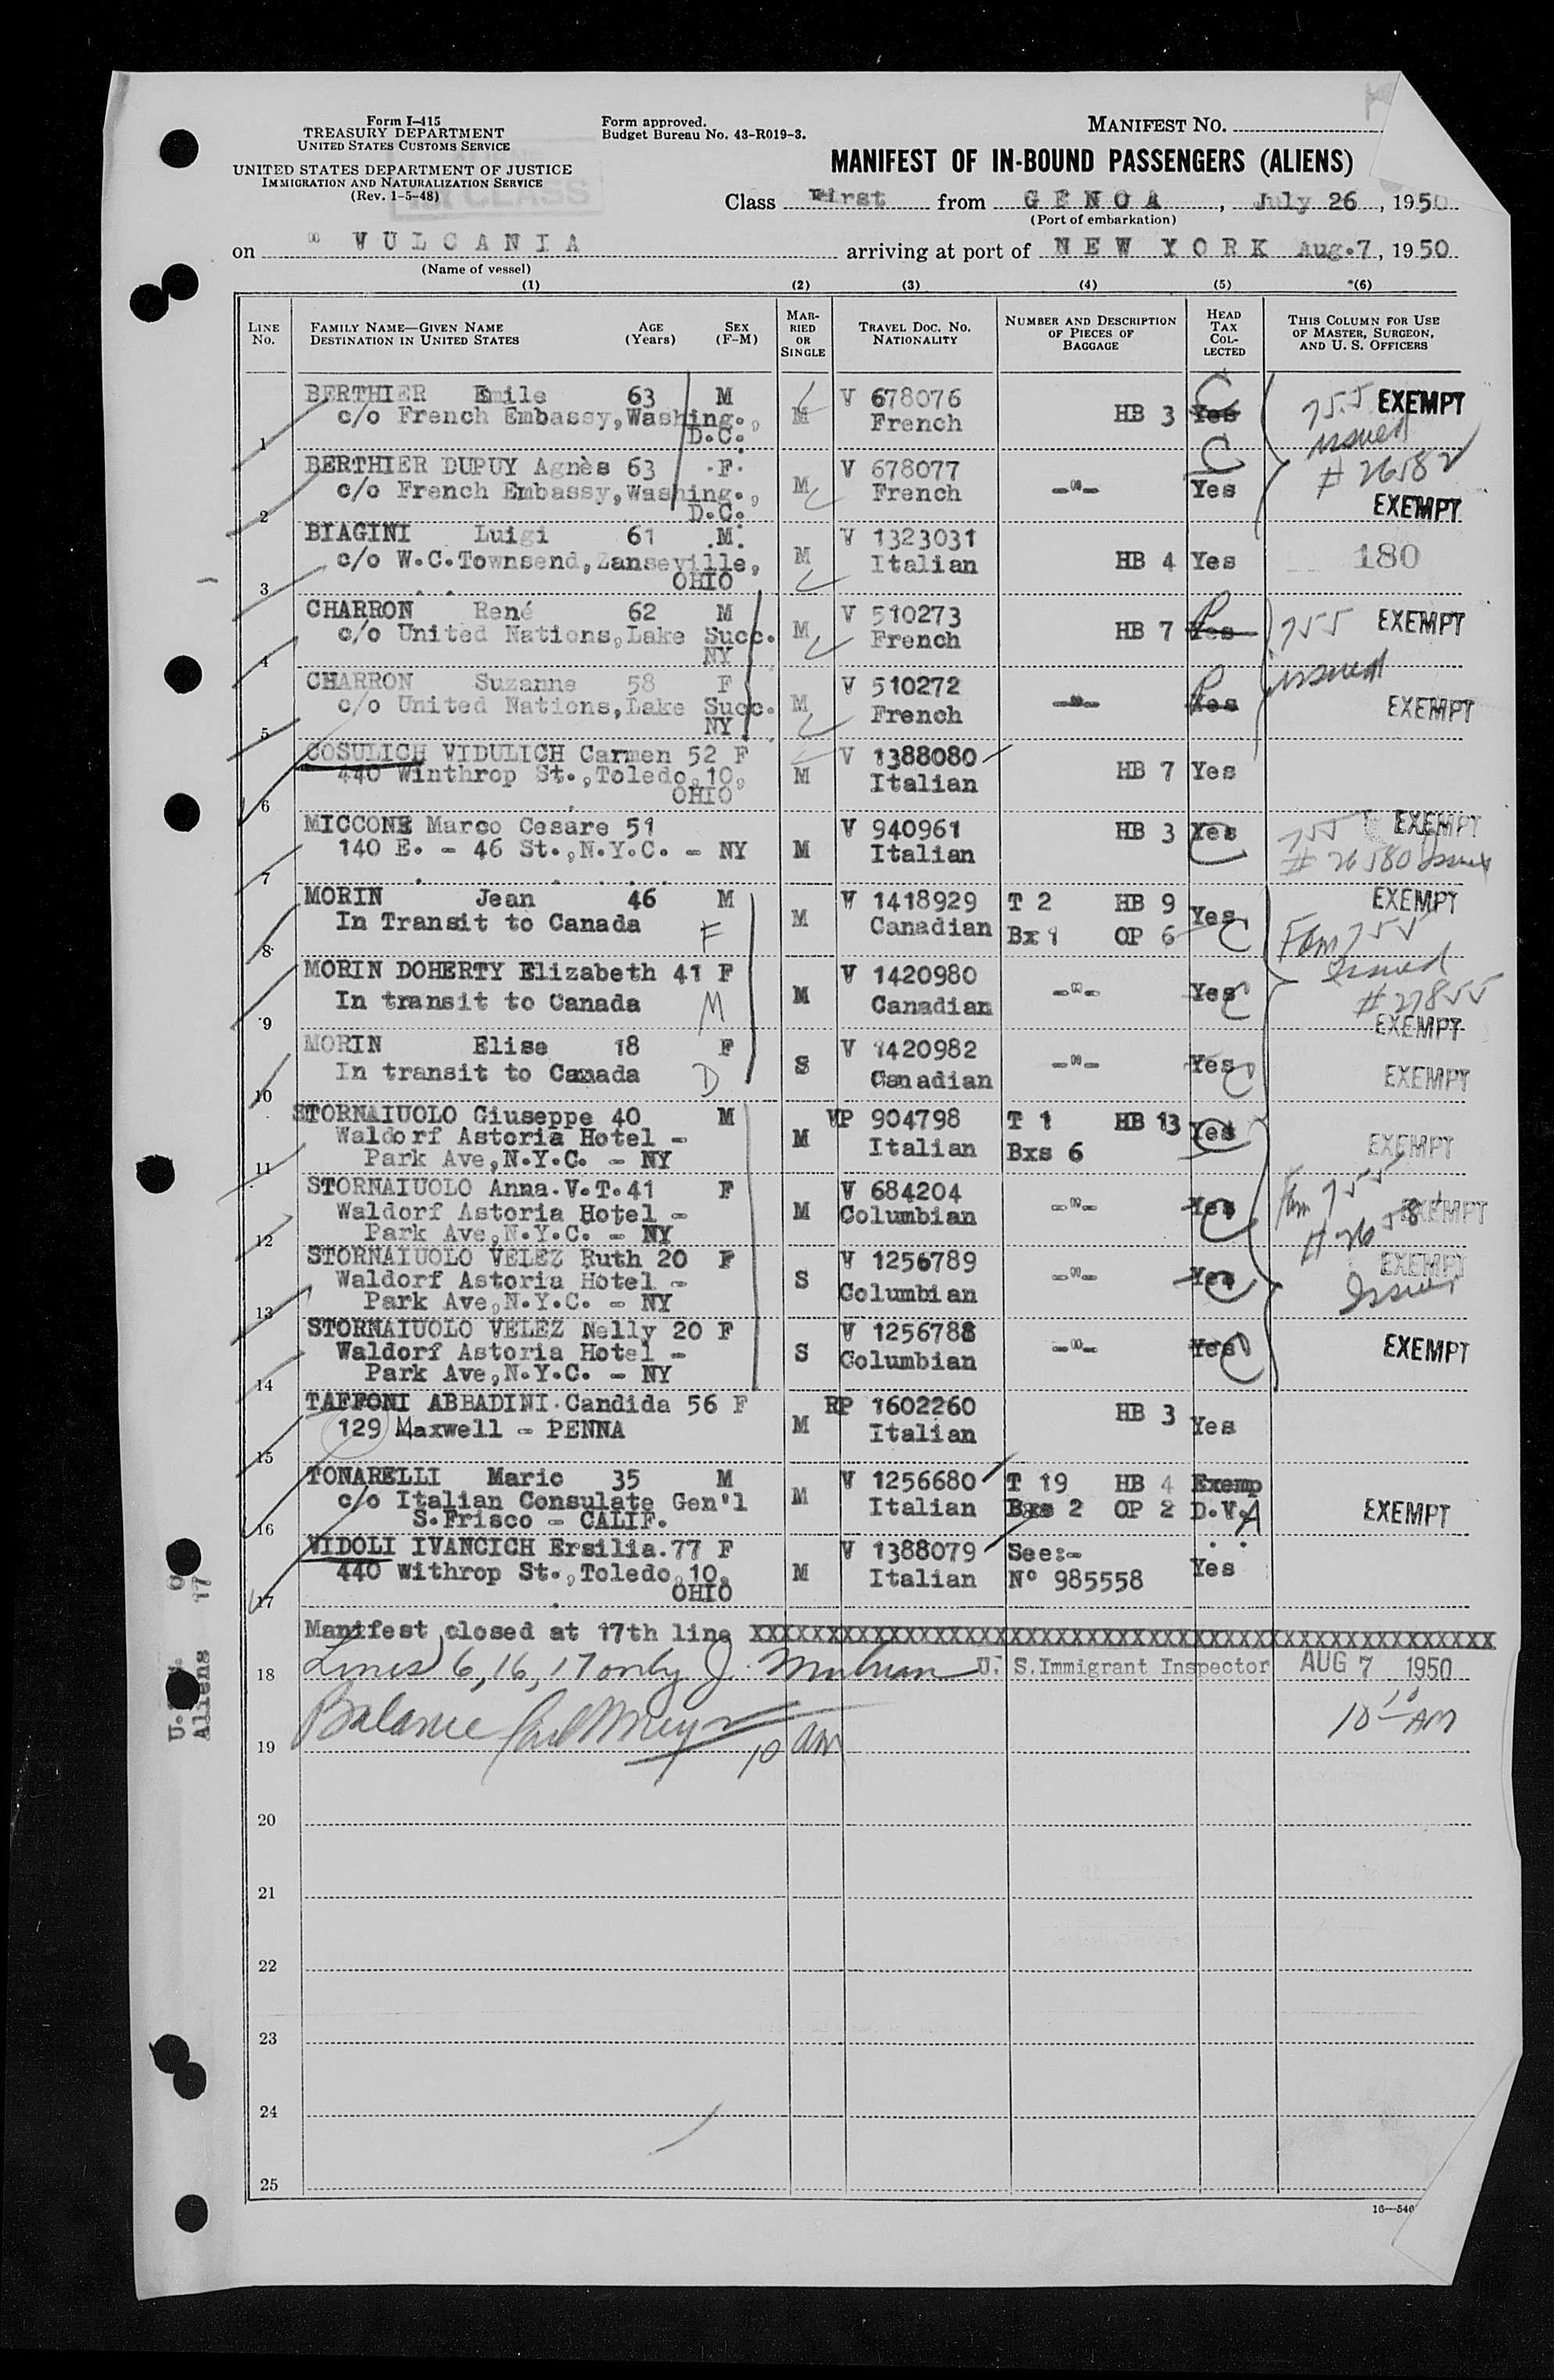 Form I-415
TREASURY DEPARTMENT
UNITED STATES CUSTOMS SERVICE
UNITED STATES DEPARTMENT OF JUSTICE
IMMIGRATION AND NATURALIZATION SERVICE
(Rev. 1-5-48)
Form approved.
Budget Bureau No. 43-R019-3.
MANIFEST NO.
MANIFEST OF IN-BOUND PASSENGERS (ALIENS)
Class First from GENOA, July 26, 1950
(Port of embarkation)
on VULCANIA arriving at port of NEW YORK Aug.7, 1950
(Name of vessel)
(1) (2) (3) (4) (5) *(6)
LINE NO. FAMILY NAME—GIVEN NAME DESTINATION IN UNITED STATES AGE (Years) SEX (F-M) MARRIED OR SINGLE TRAVEL DOC. NO. NATIONALITY NUMBER AND DESCRIPTION OF PIECES OF BAGGAGE HEAD TAX COLLECTED THIS COLUMN FOR USE OF MASTER, SURGEON, AND U. S. OFFICERS
BERTHIER Emile 63 M M V 678076 HB 3 Yes 755 EXEMPT
c/o French Embassy, Washing., French issued
1 D.C.
BERTHIER DUPUY Agnès 63 F. M V 678077 -"- Yes # 26582
c/o French Embassy, Washing., French EXEMPT
2 D.C.
BIAGINI Luigi 61 M. M V 1323031 HB 4 Yes 180
c/o W.C.Townsend, Zanseville, Italian
3 OHIO
CHARRON René 62 M M V 510273 HB 7 Yes 755 EXEMPT
c/o United Nations, Lake Succ. French issued
4 NY
CHARRON Suzanne 58 F M V 510272 -"- Yes EXEMPT
c/o United Nations, Lake Succ. French
5 NY
COSULICH VIDULICH Carmen 52 F M V 1388080 HB 7 Yes
440 Winthrop St., Toledo, 10, Italian
6 OHIO
MICCONE Marco Cesare 51 M V 940961 HB 3 Yes 755 EXEMPT
140 E. - 46 St., N.Y.C. - NY Italian # 26580 Issued
7
MORIN Jean 46 M M V 1418929 T 2 HB 9 Yes EXEMPT
In Transit to Canada F Canadian Bx 1 OP 6 Fam 755
8 Issued
MORIN DOHERTY Elizabeth 41 F M V 1420980 -"- Yes # 27855
In transit to Canada M Canadian EXEMPT
9
MORIN Elise 18 F S V 1420982 -"- Yes EXEMPT
In transit to Canada D Canadian
10
STORNAIUOLO Giuseppe 40 M M VP 904798 T 1 HB 13 Yes EXEMPT
Waldorf Astoria Hotel - Italian Bxs 6
11 Park Ave, N.Y.C. - NY
STORNAIUOLO Anna.V.T. 41 F M V 684204 -"- Yes Fam 755 EXEMPT
Waldorf Astoria Hotel - Columbian
12 Park Ave, N.Y.C. - NY
STORNAIUOLO VELEZ Ruth 20 F S V 1256789 -"- Yes EXEMPT
Waldorf Astoria Hotel - Columbian Issued
13 Park Ave, N.Y.C. - NY
STORNAIUOLO VELEZ Nelly 20 F S V 1256788 -"- Yes EXEMPT
Waldorf Astoria Hotel - Columbian
14 Park Ave, N.Y.C. - NY
TAFFONI ABBADINI.Candida 56 F M RP 1602260 HB 3 Yes
129 Maxwell - PENNA Italian
15
TONARELLI Mario 35 M M V 1256680 T 19 HB 4 Exemp
c/o Italian Consulate Gen'l Italian Bxs 2 OP 2 D.V.A EXEMPT
16 S.Frisco - CALIF.
VIDOLI IVANCICH Ersilia.77 F M V 1388079 See:- Yes
440 Withrop St., Toledo, 10, Italian N° 985558
17 OHIO
Manifest closed at 17th line XXXXXXXXXXXXXXXXXXXXXXXXXXXXXXXXXXXXXXXXXXXXXXXX
18 Lines 6, 16, 17 only J. U. S. Immigrant Inspector AUG 7 1950
19 Balance 10 am 10 10 AM
20
21
22
23
24
25
Aliens 17